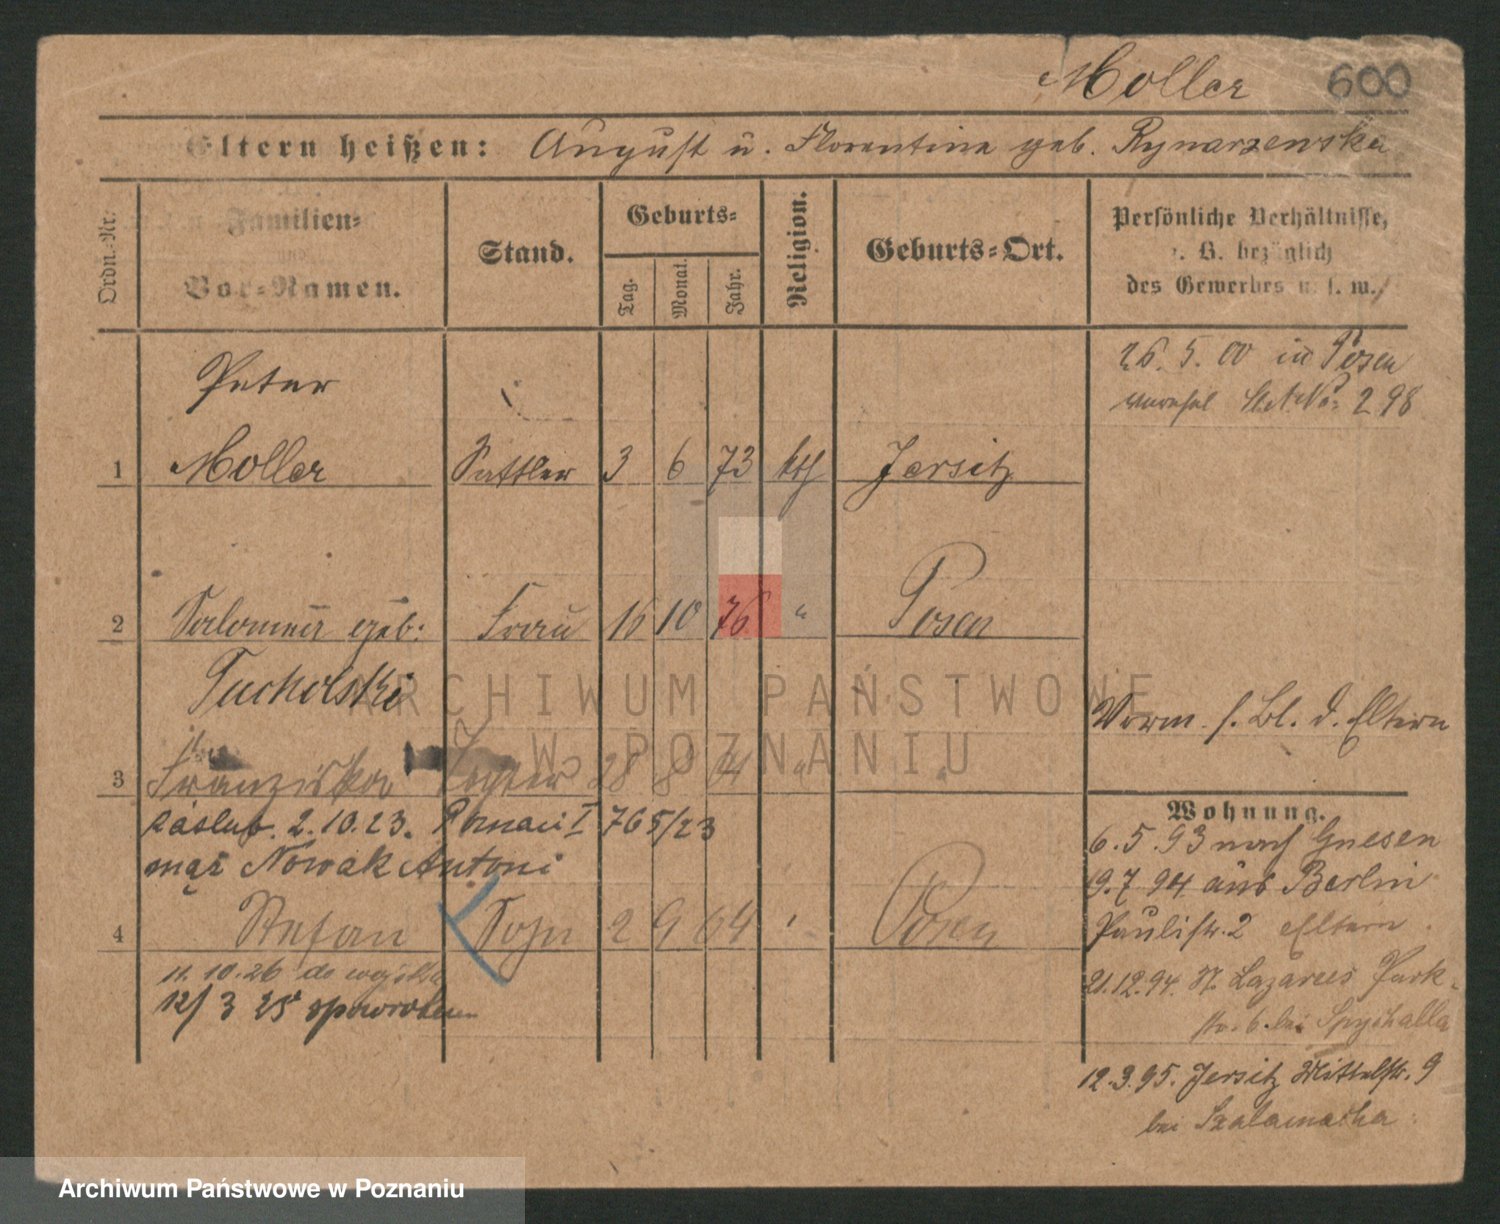 Moller 600
Eltern heißen: August u. Florentine geb. Rynarzewska
Ordn.-Nr.
Familien-
Vor-Namen.
Stand.
Geburts-
Tag.
Monat.
Jahr.
Religion.
Geburts-Ort.
Persönliche Verhältnisse,
z. B. bezüglich
des Gewerbes u. s. w.
Peter
1 Moller Sattler 3 6 73 kth Jersitz
26. 5. 00 in Posen
2 98
2 Salomea geb: Frau 16 10 76 " Posen
Tucholski
Vorm. s. Bl. d. Eltern
3 Franziska Tochter 28 8 "
zaślub. 2.10.23. Poznań I 765/23
mąż Nowak Antoni
4 Stefan Sohn 2 9 04 Posen
11.10.26 do
12/3 25 spowrotem
Wohnung.
6.5.93 nach Gnesen
9.7.94 aus Berlin
Paulistr. 2 Eltern
21.12.94. St. Lazarus Park-
str. 6. bei Spychalla
12.3.95. Jersitz Mittelstr. 9
bei Szalamacha
ARCHIWUM PAŃSTWOWE
W POZNANIU
Archiwum Państwowe w Poznaniu